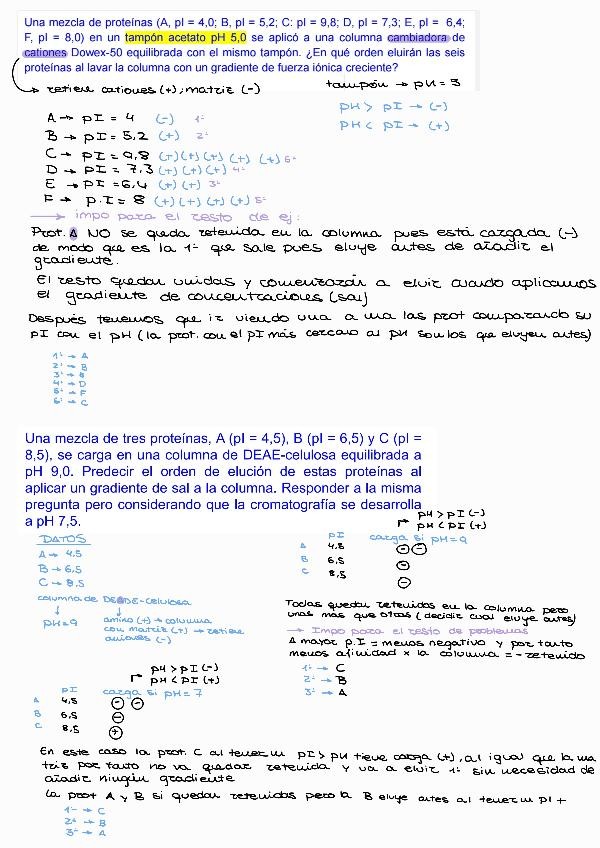 Una mezcla de proteínas (A, pI = 4,0; B, pI = 5,2; C: pI = 9,8; D, pI = 7,3; E, pI = 6,4;
F, pI = 8,0) en un tampón acetato pH 5,0 se aplicó a una columna cambiadora de
cationes Dowex-50 equilibrada con el mismo tampón. ¿En qué orden eluirán las seis
proteínas al lavar la columna con un gradiente de fuerza iónica creciente?
→ retiene cationes (+), matriz (-)
tampón → pH = 5
pH > pI → (-)
pH < pI → (+)
A → pI = 4 (-) 1º
B → pI = 5,2 (+) 2º
C → pI = 9,8 (+)(+)(+)(+)(+) 6º
D → pI = 7,3 (+)(+)(+) 4º
E → pI = 6,4 (+)(+) 3º
F → p.I = 8 (+)(+)(+)(+) 5º
→ impo para el resto de ej:
Prot. A NO se queda retenida en la columna pues está cargada (-)
de modo que es la 1º que sale pues eluye antes de añadir el
gradiente.
El resto quedan unidas y comenzarán a eluir cuando apliquemos
el gradiente de concentraciones (sal)
Después tenemos que ir viendo una a una las prot comparando su
pI con el pH (la prot. con el pI más cercano al pH son los que eluyen antes)
1º → A
2º → B
3º → E
4º → D
5º → F
6º → C
Una mezcla de tres proteínas, A (pI = 4,5), B (pI = 6,5) y C (pI =
8,5), se carga en una columna de DEAE-celulosa equilibrada a
pH 9,0. Predecir el orden de elución de estas proteínas al
aplicar un gradiente de sal a la columna. Responder a la misma
pregunta pero considerando que la cromatografía se desarrolla
a pH 7,5.
DATOS
A → 4,5
B → 6,5
C → 8,5
pH > pI (-)
pH < pI (+)
pI carga si pH = 9
A 4,5 (-) (-)
B 6,5 (-)
C 8,5 (-)
columna de DEADE-celulosa
pH = 9
amino (+) → columna
con matriz (+) → retiene
aniones (-)
Todas quedan retenidas en la columna pero
unas más que otras (decidir cual eluye antes)
→ Impo para el resto de problemas
A mayor p.I = menos negativo y por tanto
menos afinidad x la columna = - retenido
1º → C
2º → B
3º → A
pH > pI (-)
pH < pI (+)
pI carga si pH = 7
A 4,5 (-) (-)
B 6,5 (-)
C 8,5 (+)
En este caso la prot. C al tener un pI > pH tiene carga (+), al igual que la ma
triz por tanto no va quedar retenida y va a eluir 1º sin necesidad de
añadir ningún gradiente
La prot A y B si quedan retenidas pero la B eluye antes al tener un pI +
1º → C
2º → B
3º → A